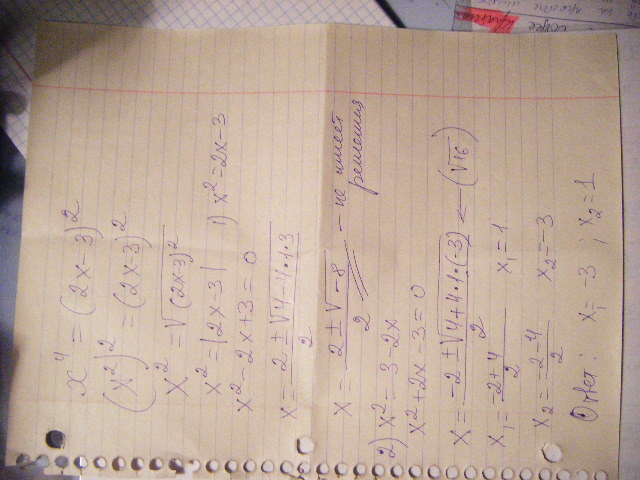 x⁴ = (2x-3)²
(x²)² = (2x-3)²
x² = √(2x-3)²
x² = |2x-3| 1) x² = 2x-3
x² - 2x + 3 = 0
x = -2 ± √4-4·1·3 / 2
x = 2 ± √-8 / 2 - не имеет решения
2) x² = 3 - 2x
x² + 2x - 3 = 0
x = -2 ± √4+4·1·(-3) / 2 ← (√16)
x₁ = -2+4 / 2 x₁ = 1
x₂ = -2-4 / 2 x₂ = -3
Ответ: x₁ = -3 ; x₂ = 1